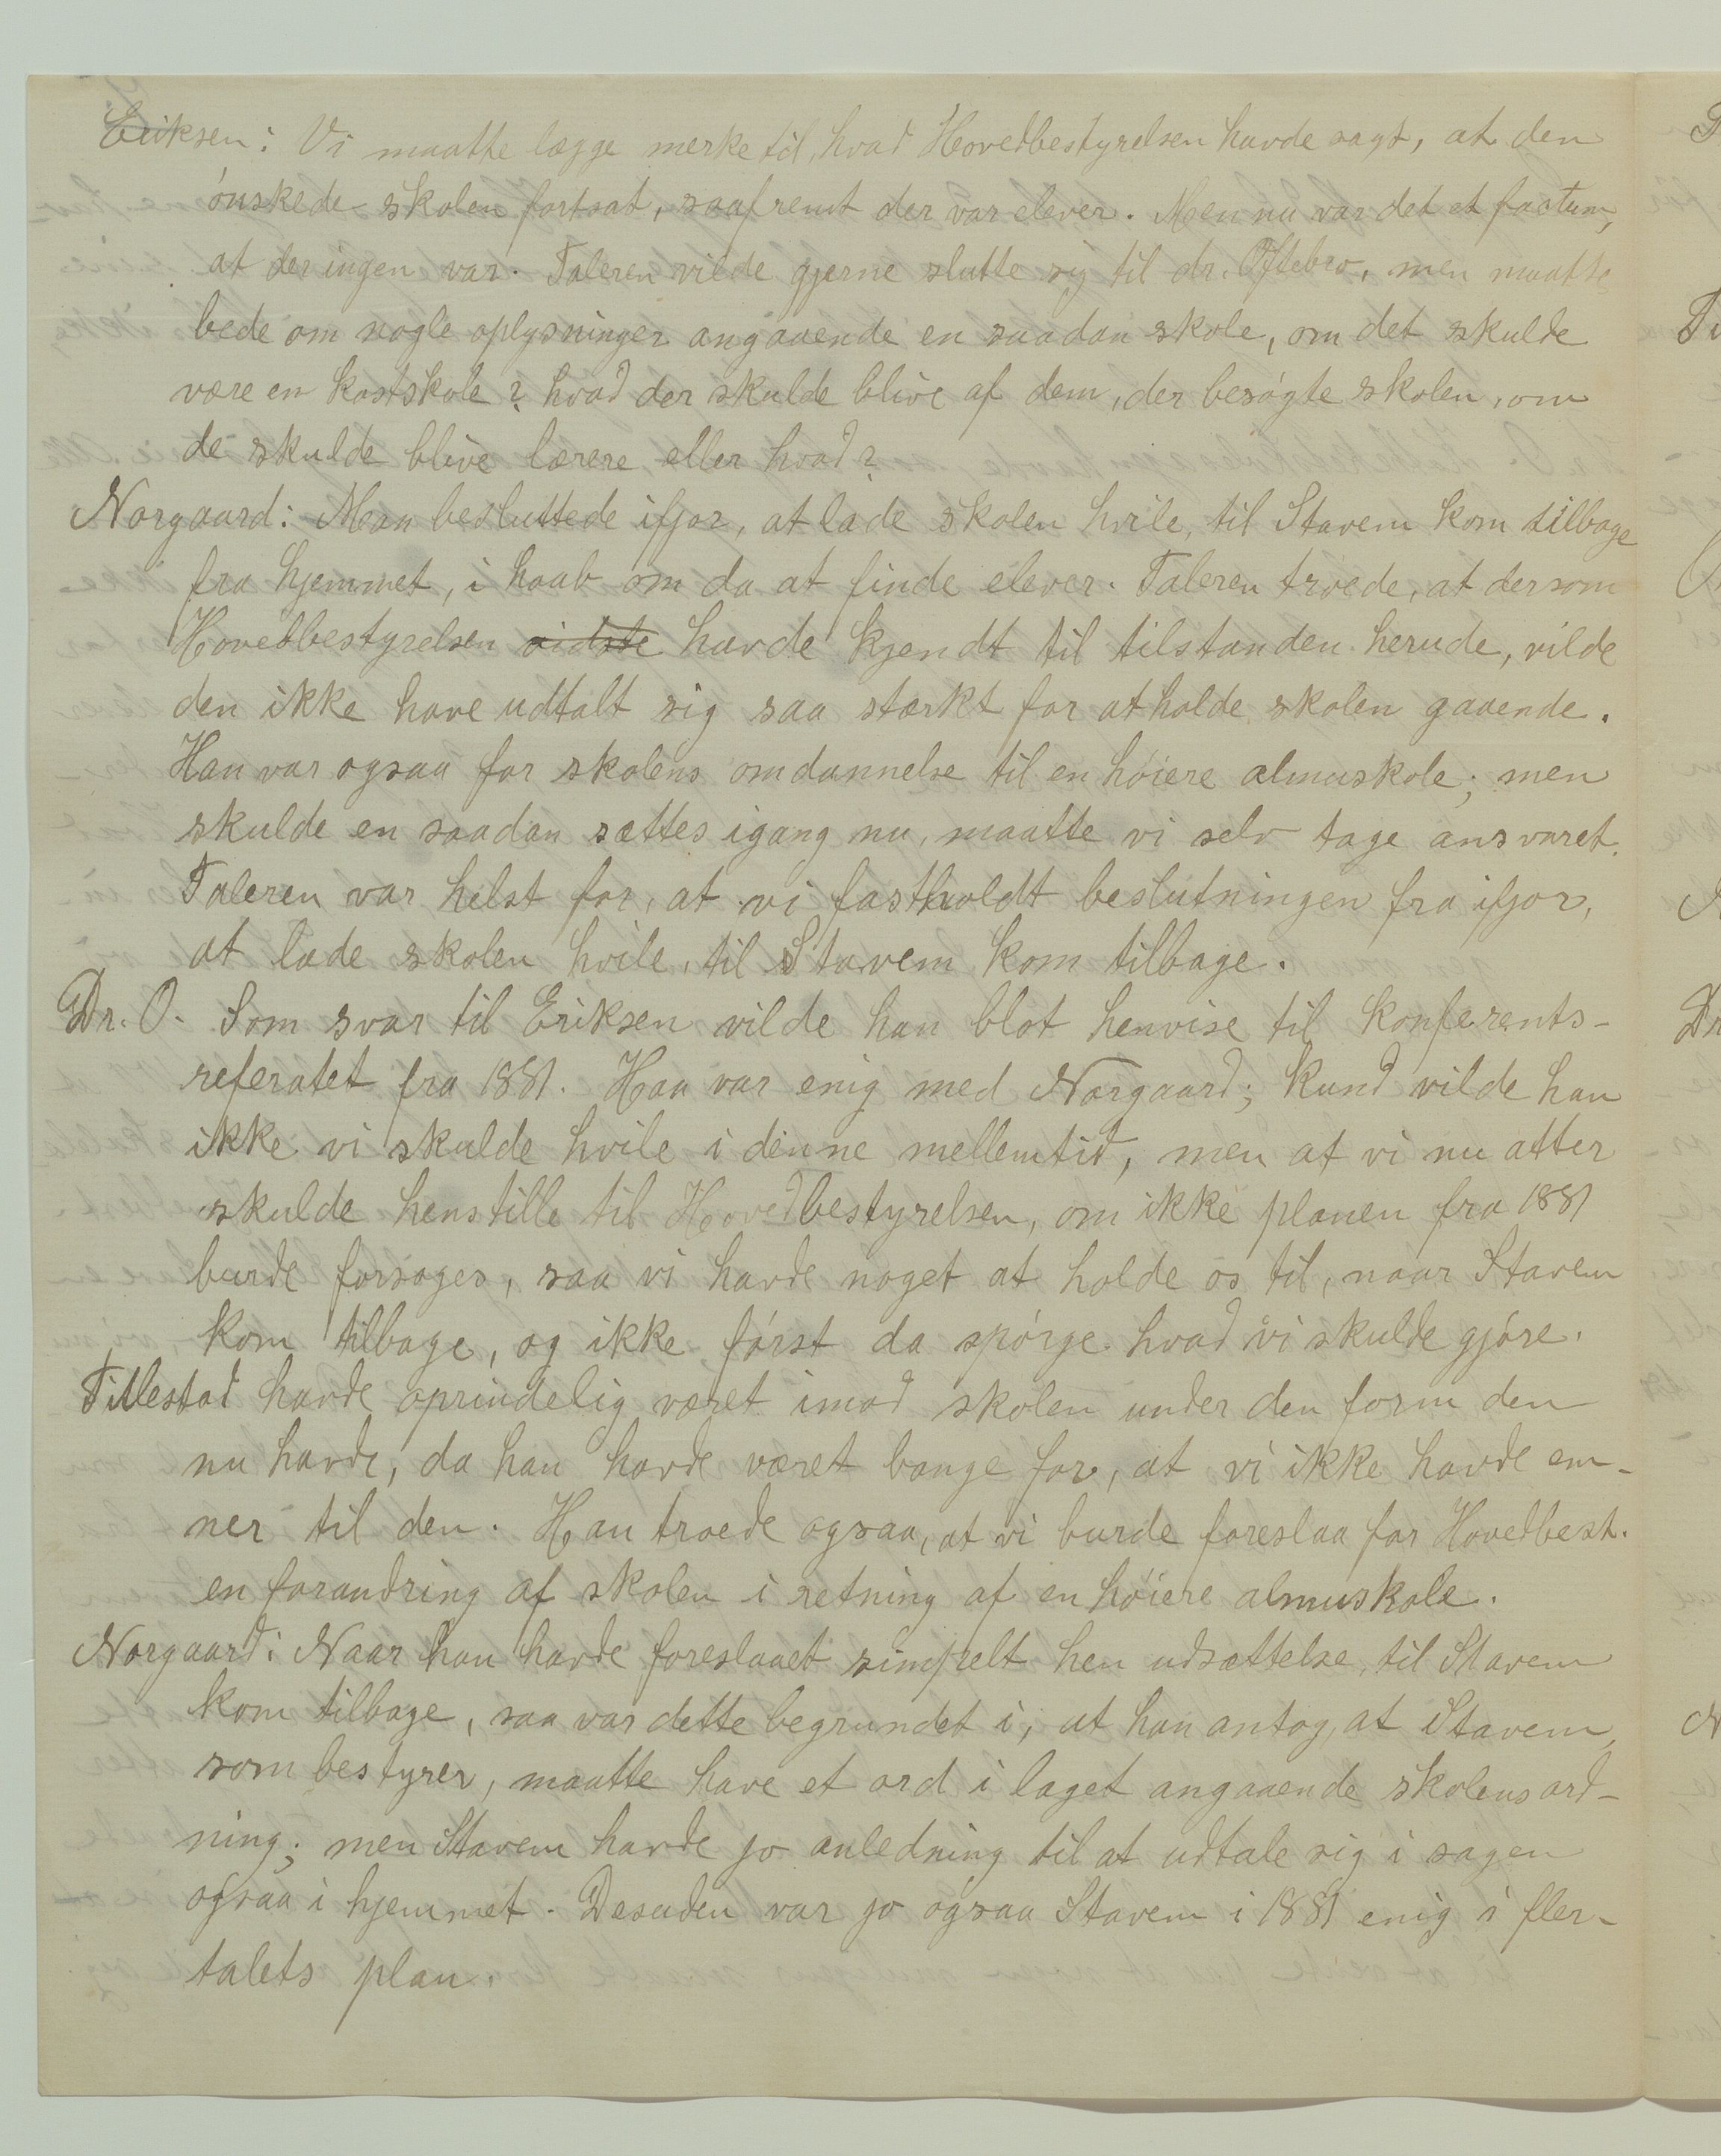 Eriksen: Vi maatte lægge merke til, hvad Hovedbestyrelsen havde sagt, at den
ónskede skolen fortsat, saafremt der var elever. Men nu var det et factum,
at der ingen var. Taleren vilde gjerne slutte sig til dr. Oftebro, men maatte
bede om nogle oplysninger angaaende en saadan skole, om det skulde
være en kostskole? hvad der skulde blive af dem, der besógte skolen, om
de skulde blive lærere eller hvad?
Norgaard: Man besluttede ifjor, at lade skolen hvile, til Stavem kom tilbage
fra hjemmet, i haab om da at finde elever. Taleren troede, at dersom
Hovedbestyrelsen vidste havde kjendt til tilstanden herude, vilde
den ikke have udtalt sig saa stærkt for at holde skolen gaaende.
Han var ogsaa for skolens omdannelse til en hóiere almuskole; men
skulde en saadan sættes igang nu, maatte vi selv tage ansvaret.
Taleren var helst for, at vi fastholdt beslutningen fra ifjor,
at lade skolen hvile, til Stavem kom tilbage.
Dr. O. Som svar til Eriksen vilde han blot henvise til konferents-
referatet fra 1881. Han var enig med Norgaard; kund vilde han
ikke vi skulde hvile i denne mellemtid, men at vi nu atter
skulde henstille til Hovedbestyrelsen, om ikke planen fra 1881
burde forsøges, saa vi havde noget at holde os til, naar Stavem
kom tilbage, og ikke fórst da spórge hvad vi skulde gjóre.
Titlestad havde oprindelig været imod skolen under den form den
nu havde, da han havde været bange for, at vi ikke havde em-
ner til den. Han troede ogsaa, at vi burde foreslaa for Hovedbest.
en forandring af skolen i retning af en hóiere almuskole.
Norgaard: Naar han havde foreslaaet simpelt hen udsættelse, til Stavem
kom tilbage, saa var dette begrundet i, at han antog, at Stavem,
som bestyrer, maatte have et ord i laget angaaende skolens ord-
ning; men Stavem havde jo anledning til at udtale sig i sagen
ogsaa i hjemmet. Desuden var jo ogsaa Stavem i 1881 enig i fler-
talets plan.